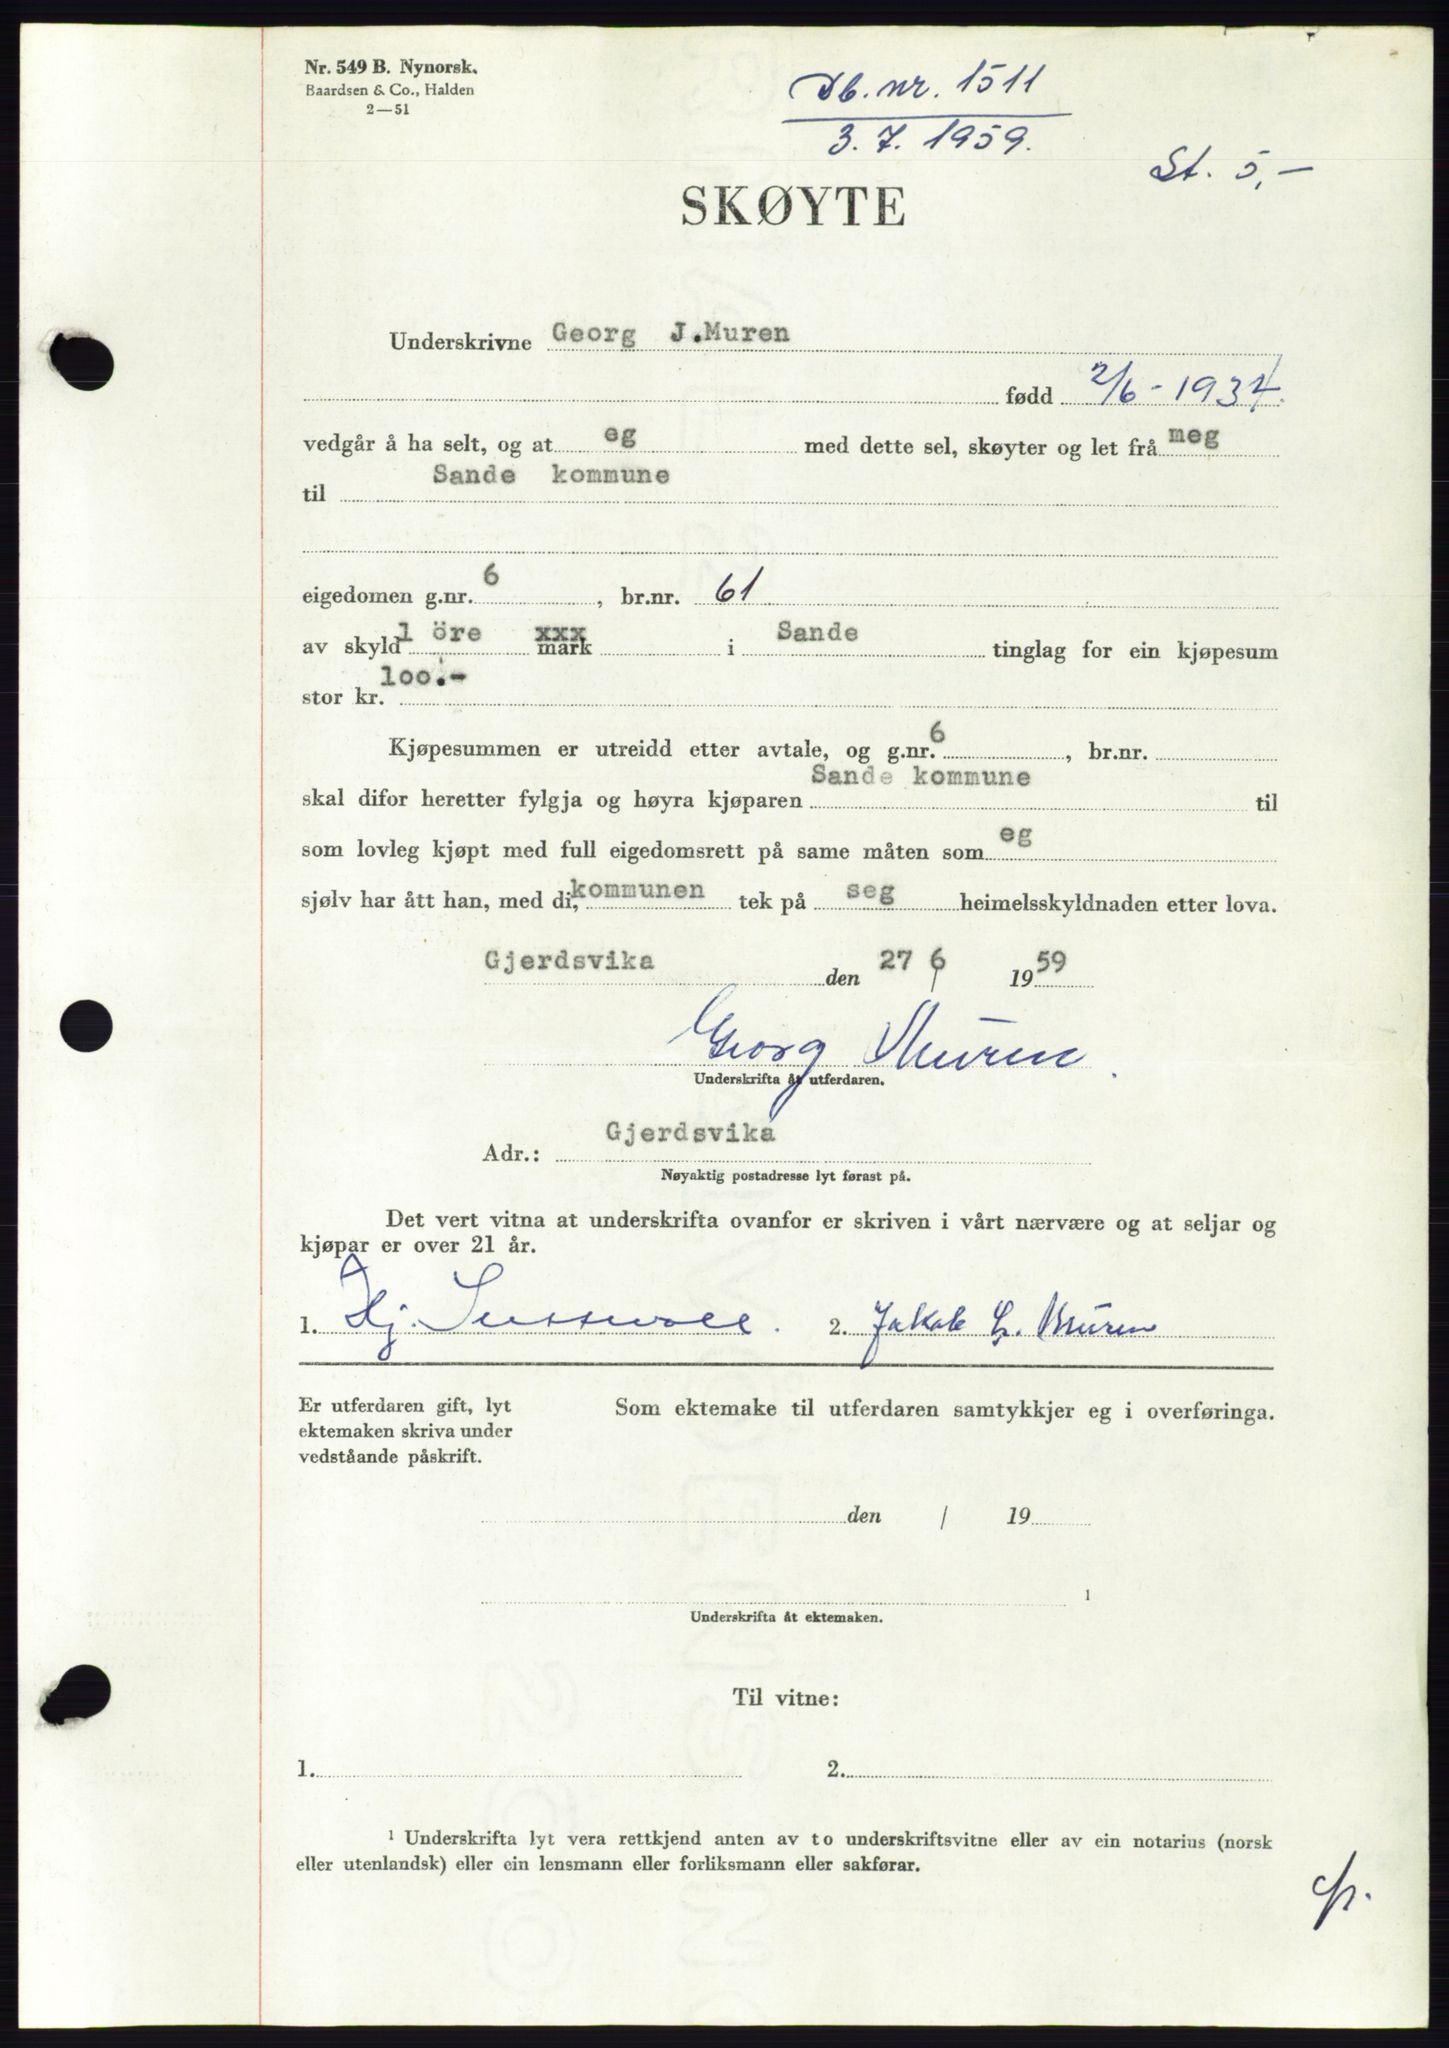 Nr. 549 B. Nynorsk.
Baardsen & Co., Halden
2—51
Db. nr. 1511
3. 7. 1959.
St. 5,—
SKØYTE
Underskrivne Georg J.Muren
fødd 2/6 - 1934.
vedgår å ha selt, og at eg med dette sel, skøyter og let frå meg
til Sande kommune
eigedomen g.nr. 6, br.nr. 61
av skyld 1 öre xxx mark i Sande tinglag for ein kjøpesum
stor kr. 100.-
Kjøpesummen er utreidd etter avtale, og g.nr. 6, br.nr.
skal difor heretter fylgja og høyra kjøparen Sande kommune til
som lovleg kjøpt med full eigedomsrett på same måten som eg
sjølv har ått han, med di, kommunen tek på seg heimelsskyldnaden etter lova.
Gjerdsvika den 27 / 6 1959
Georg Muren.
Underskrifta åt utferdaren.
Adr.: Gjerdsvika
Nøyaktig postadresse lyt førast på.
Det vert vitna at underskrifta ovanfor er skriven i vårt nærvære og at seljar og
kjøpar er over 21 år.
1. Hj. 2. Jakob G. Muren
Er utferdaren gift, lyt
ektemaken skriva under
vedståande påskrift.
Som ektemake til utferdaren samtykkjer eg i overføringa.
den / 19
1
Underskrifta åt ektemaken.
Til vitne:
1. 2.
1 Underskrifta lyt vera rettkjend anten av to underskriftsvitne eller av ein notarius (norsk
eller utenlandsk) eller ein lensmann eller forliksmann eller sakførar.